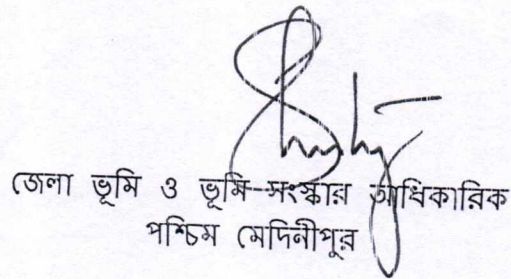 জেলা ভূমি ও ভূমি-সংস্কার আধিকারিক
পশ্চিম মেদিনীপুর